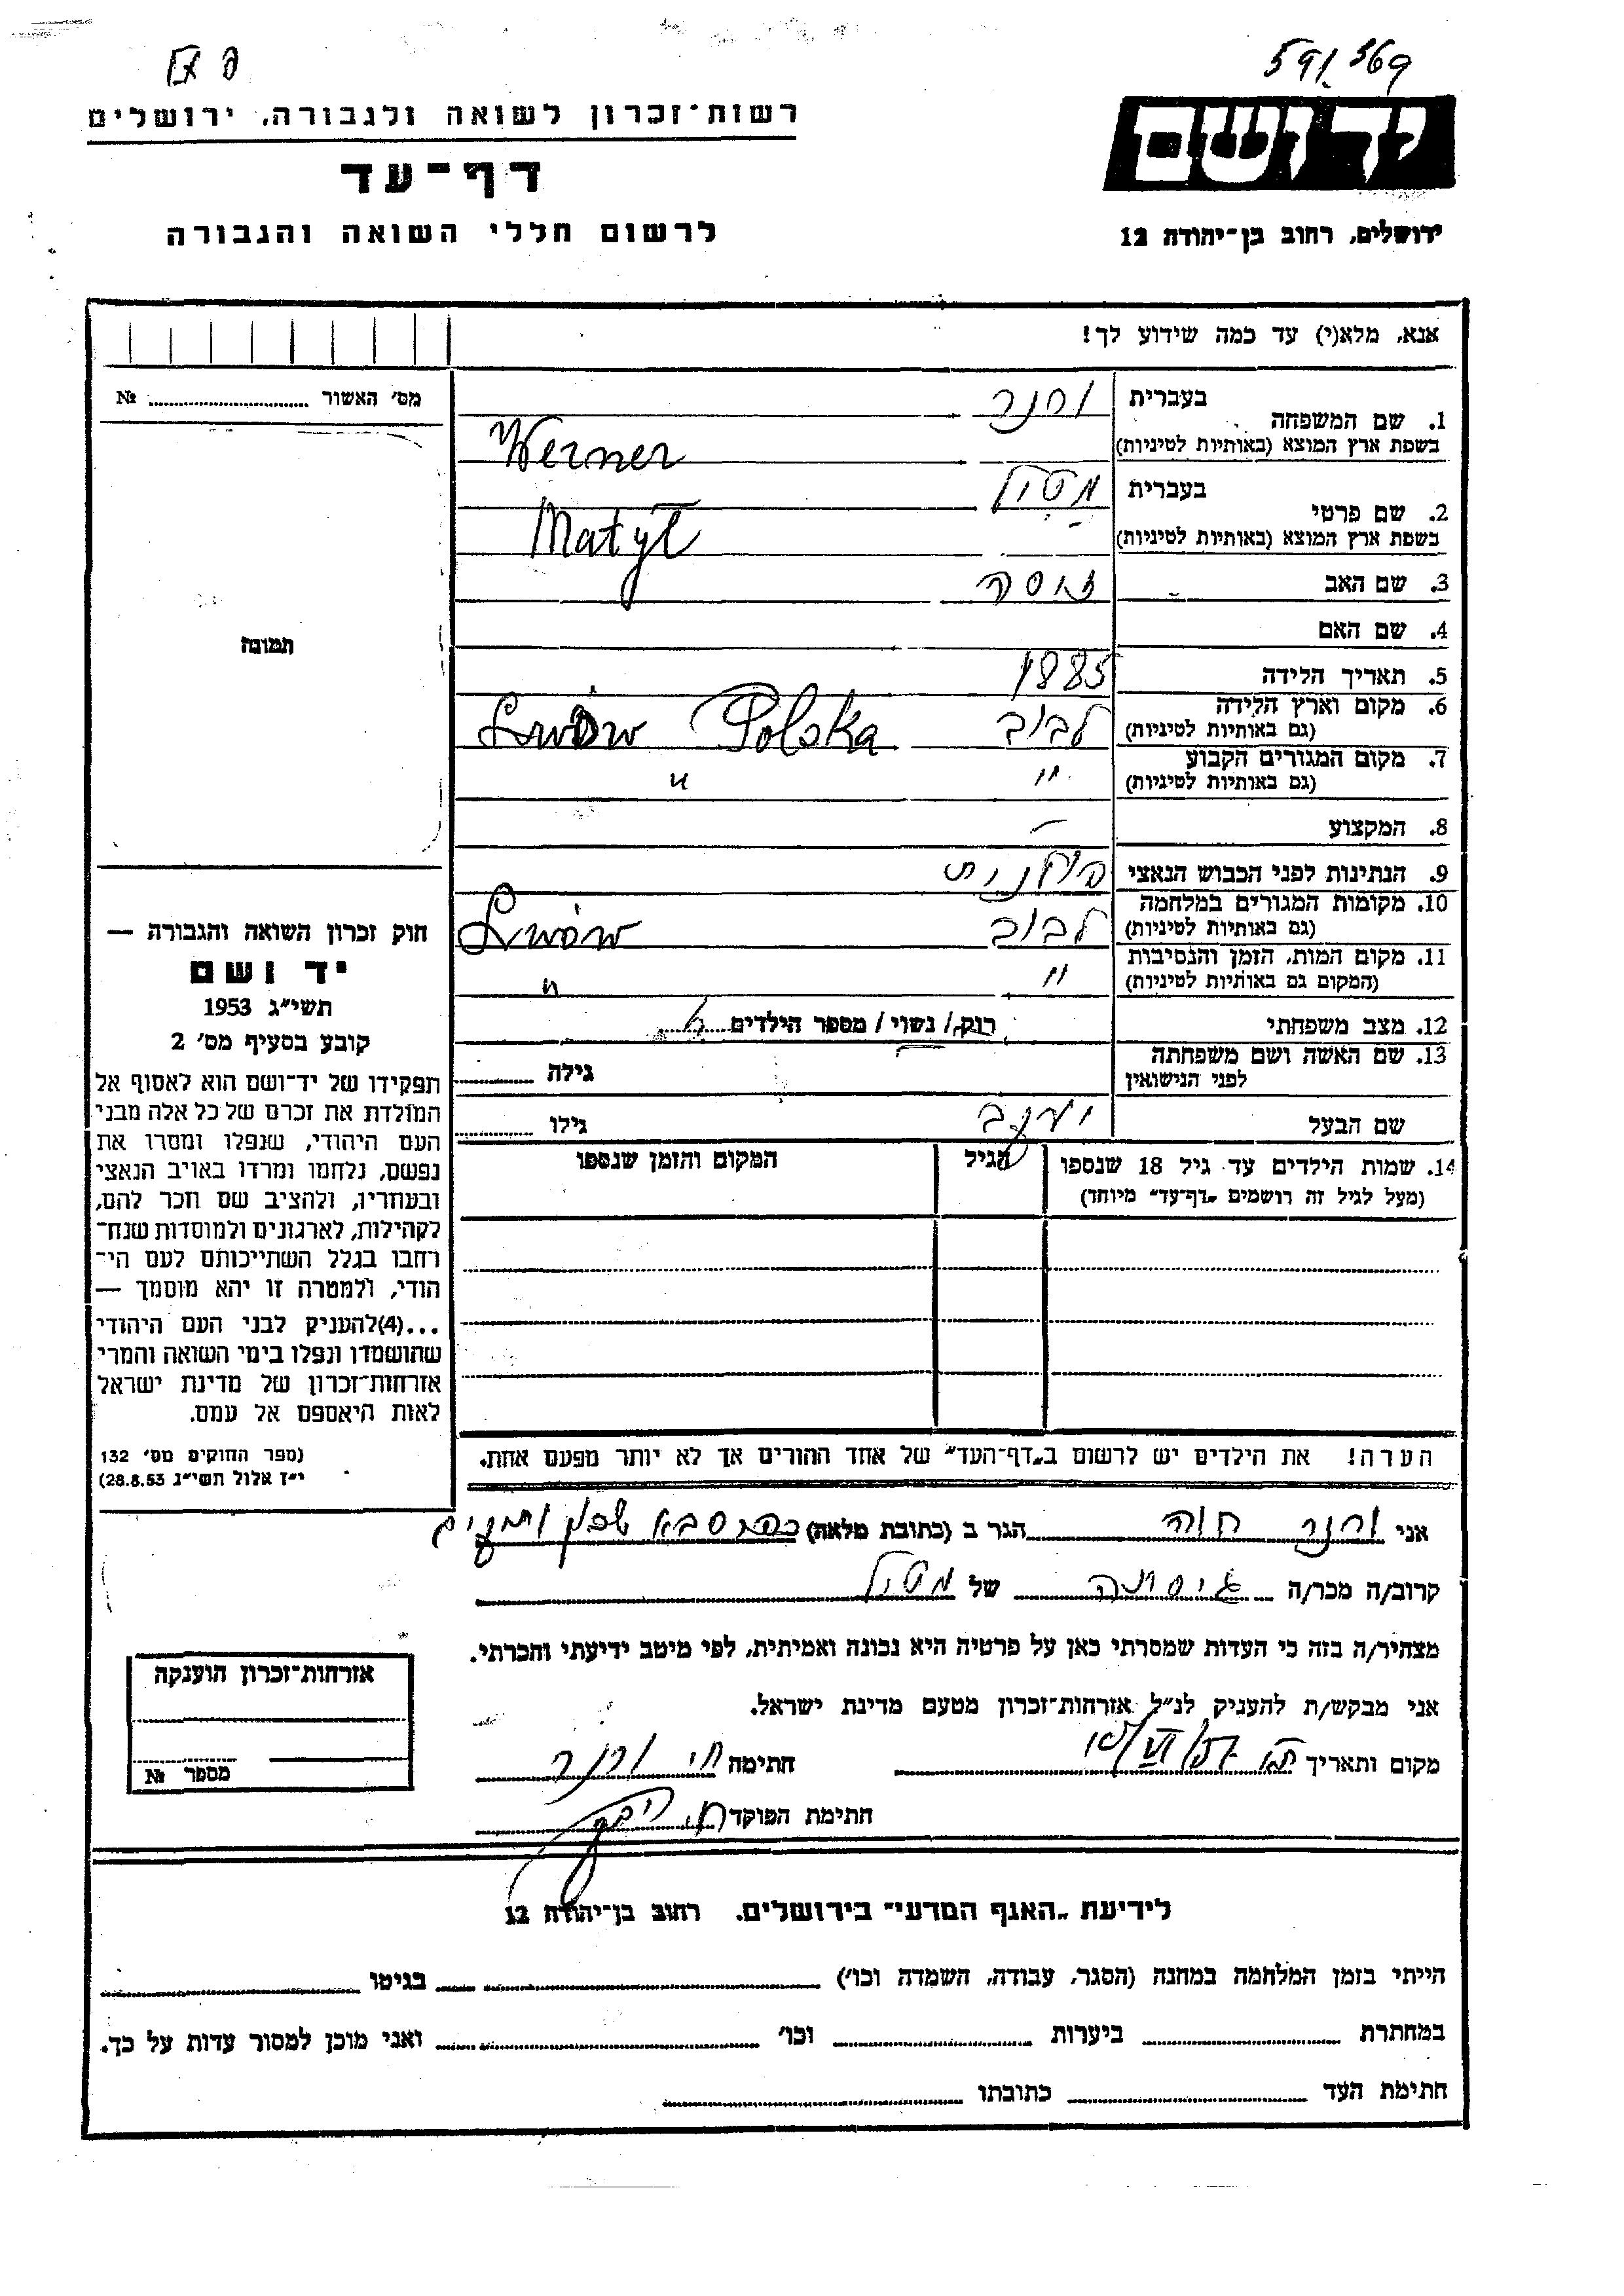 591/369
רשות־זכרון לשואה ולגבורה, ירושלים
יד ושם
דף־עד
ירושלים, רחוב בן־יהודה 12
לרשום חללי השואה והגבורה
אנא, מלא(י) עד כמה שידוע לך!
מס׳ האשור №
תמונה
1. שם המשפחה בעברית ורנר
בשפת ארץ המוצא (באותיות לטיניות) Werner
2. שם פרטי בעברית מטיל
בשפת ארץ המוצא (באותיות לטיניות) Matyl
3. שם האב
4. שם האם
5. תאריך הלידה 1885
6. מקום וארץ הלידה (גם באותיות לטיניות) לבוב Lwów Polska
7. מקום המגורים הקבוע (גם באותיות לטיניות) " "
8. המקצוע –
9. הנתינות לפני הכבוש הנאצי פולנית
10. מקומות המגורים במלחמה (גם באותיות לטיניות) לבוב Lwów
11. מקום המות, הזמן והנסיבות (המקום גם באותיות לטיניות) " "
12. מצב משפחתי רוק/ נשוי/ מספר הילדים
13. שם האשה ושם משפחתה לפני הנישואין גילה
שם הבעל גילו
14. שמות הילדים עד גיל 18 שנספו הגיל המקום והזמן שנספו
(מעל לגיל זה רושמים „דף־עד" מיוחד)
הערה! את הילדים יש לרשום ב„דף־העד" של אחד ההורים אך לא יותר מפעם אחת.
חוק זכרון השואה והגבורה —
יד ושם
תשי״ג 1953
קובע בסעיף מס׳ 2
תפקידו של יד־ושם הוא לאסוף אל
המולדת את זכרם של כל אלה מבני
העם היהודי, שנפלו ומסרו את
נפשם, נלחמו ומרדו באויב הנאצי
ובעוזריו, ולהציב שם וזכר להם,
לקהילות, לארגונים ולמוסדות שנח־
רבו בגלל השתייכותם לעם הי־
הודי, ולמטרה זו יהא מוסמך —
...(4)להעניק לבני העם היהודי
שהושמדו ונפלו בימי השואה והמרי
אזרחות־זכרון של מדינת ישראל
לאות היאספם אל עמם.
(ספר החוקים מס׳ 132
י״ז אלול תשי״ג 28.8.53)
אני ורנר חוה הגר ב (כתובת מלאה) כפר סבא שכון ותיקים
קרוב/ה מכר/ה גיסתה של מטיל
מצהיר/ה בזה כי העדות שמסרתי כאן על פרטיה היא נכונה ואמיתית, לפי מיטב ידיעתי והכרתי.
אני מבקש/ת להעניק לנ״ל אזרחות־זכרון מטעם מדינת ישראל.
מקום ותאריך חתימה ורנר
חתימת הפוקד
אזרחות־זכרון הוענקה
מספר №
לידיעת „האגף המדעי" בירושלים, רחוב בן־יהודה 12
הייתי בזמן המלחמה במחנה (הסגר, עבודה, השמדה וכו׳) בגיטו
במחתרת ביערות וכו׳ ואני מוכן למסור עדות על כך.
חתימת העד כתובתו